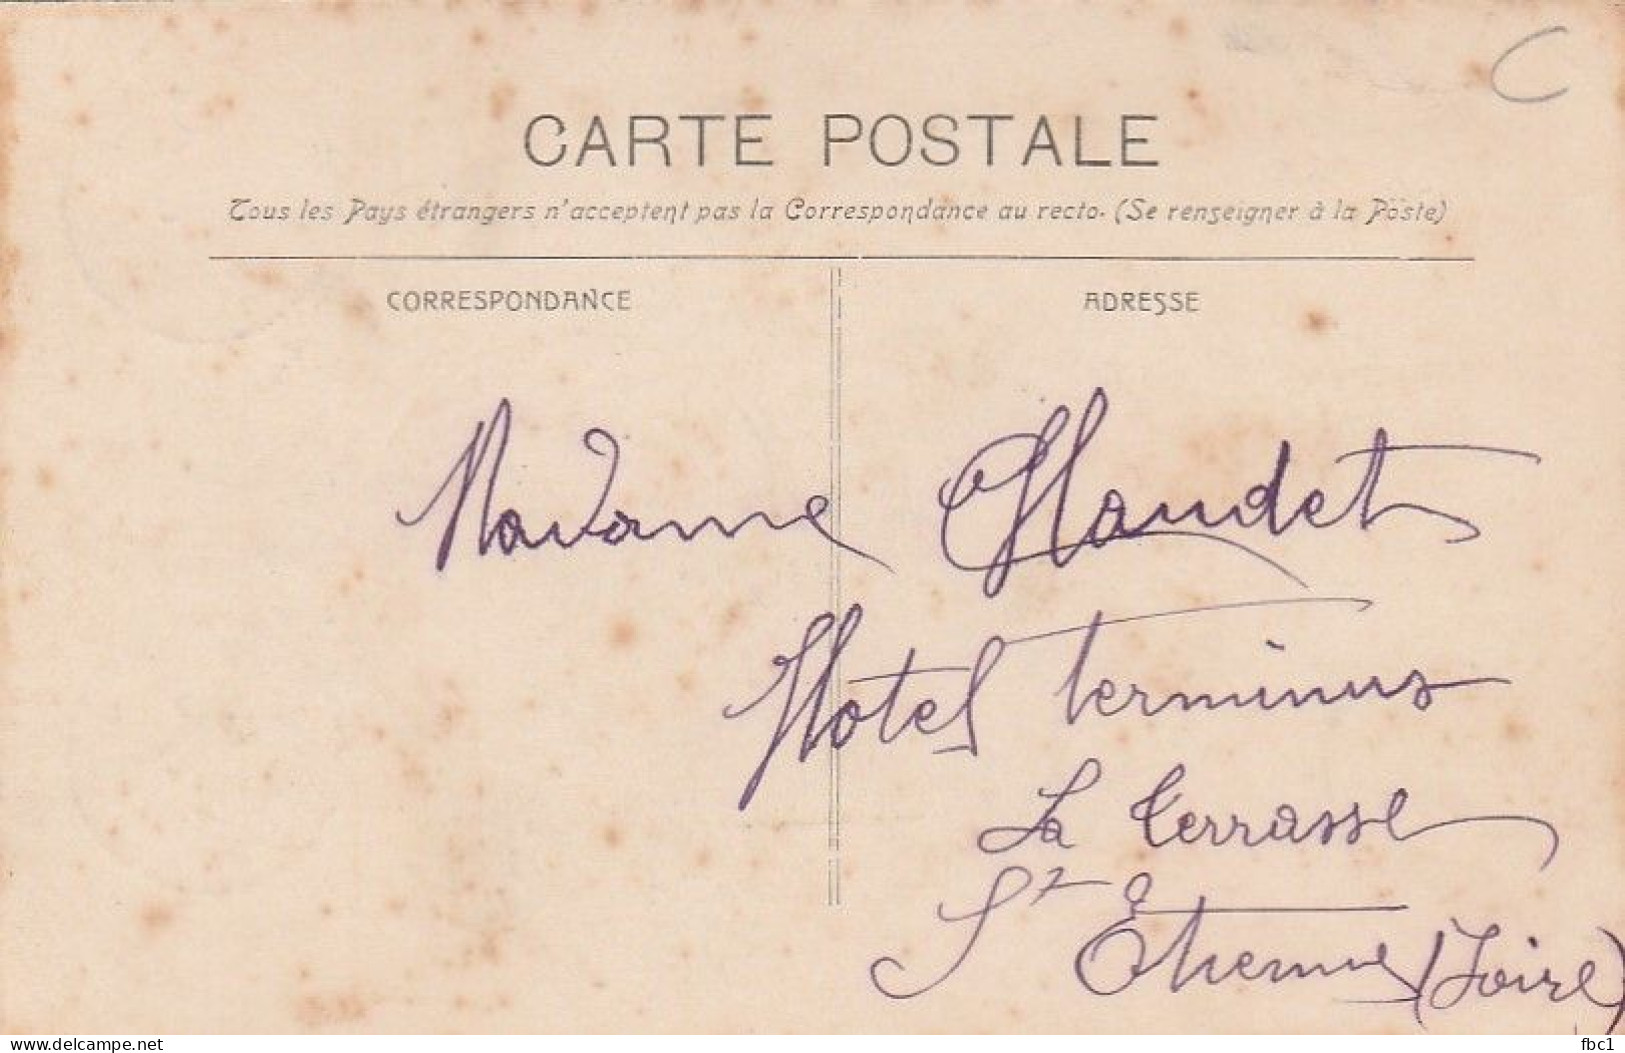 C
CARTE POSTALE
Tous les Pays étrangers n'acceptent pas la Correspondance au recto. (Se renseigner à la Poste)
CORRESPONDANCE
ADRESSE
Madame
Hotel Terminus
La terrasse
St Etienne (Loire)
www.delcampe.net
fbc1